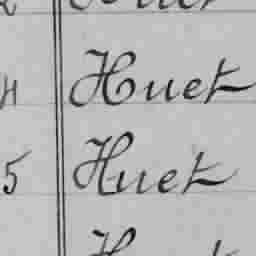 4 Huet
5 Huet